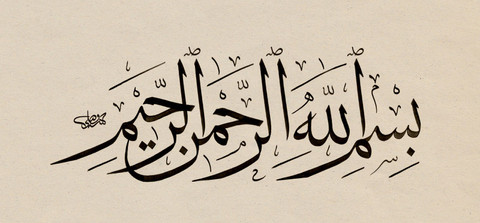 بِسْمِ اللهِ الرَّحْمنِ الرَّحِيمِ